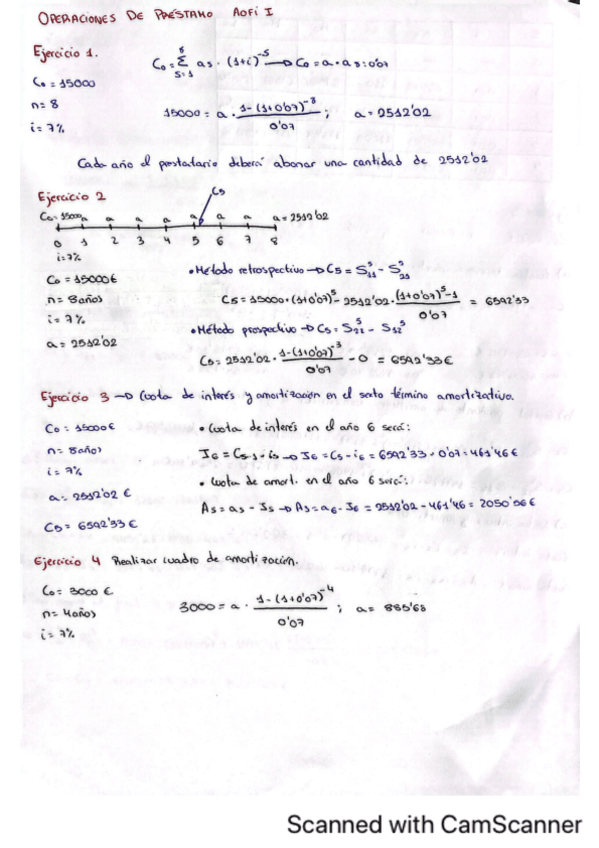 OPERACIONES DE PRÉSTAMO AOFI I
Ejercicio 1.
C₀ = Σ⁸ₛ₌₁ as · (1+i)⁻ˢ → C₀ = a · a 8:0'07
C₀ = 15000
n = 8
i = 7%
15000 = a · (1-(1+0'07)⁻⁸)/0'07 ; a = 2512'02
Cada año el prestatario deberá abonar una cantidad de 2512'02
Ejercicio 2
C₅
C₀=15000 a a a a a a a a = 2512'02
0 1 2 3 4 5 6 7 8
i=7%
C₀ = 15000€
n = 8años
i = 7%
a = 2512'02
• Método retrospectivo → C₅ =
C₅ = 15000·(1+0'07)⁵ - 2512'02 · ((1+0'07)⁵-1)/0'07 = 6592'33
• Método prospectivo → C₅ =
C₅ = 2512'02 · (1-(1+0'07)⁻³)/0'07 - 0 = 6592'33€
Ejercicio 3 → Cuota de interés y amortización en el sexto término amortizativo.
C₀ = 15000€
n = 8años
i = 7%
a = 2512'02 €
C₅ = 6592'33€
• Cuota de interés en el año 6 será:
I₆ = Cs-1 · is → I₆ = C₅ · i₆ = 6592'33 · 0'07 = 461'46€
• Cuota de amort. en el año 6 será:
As = as - Is → As = a₆ - I₆ = 2512'02 - 461'46 = 2050'56€
Ejercicio 4 Realizar cuadro de amortización.
C₀ = 3000 €
n = 4años
i = 7%
3000 = a · (1-(1+0'07)⁻⁴)/0'07 ; a = 885'68
Scanned with CamScanner